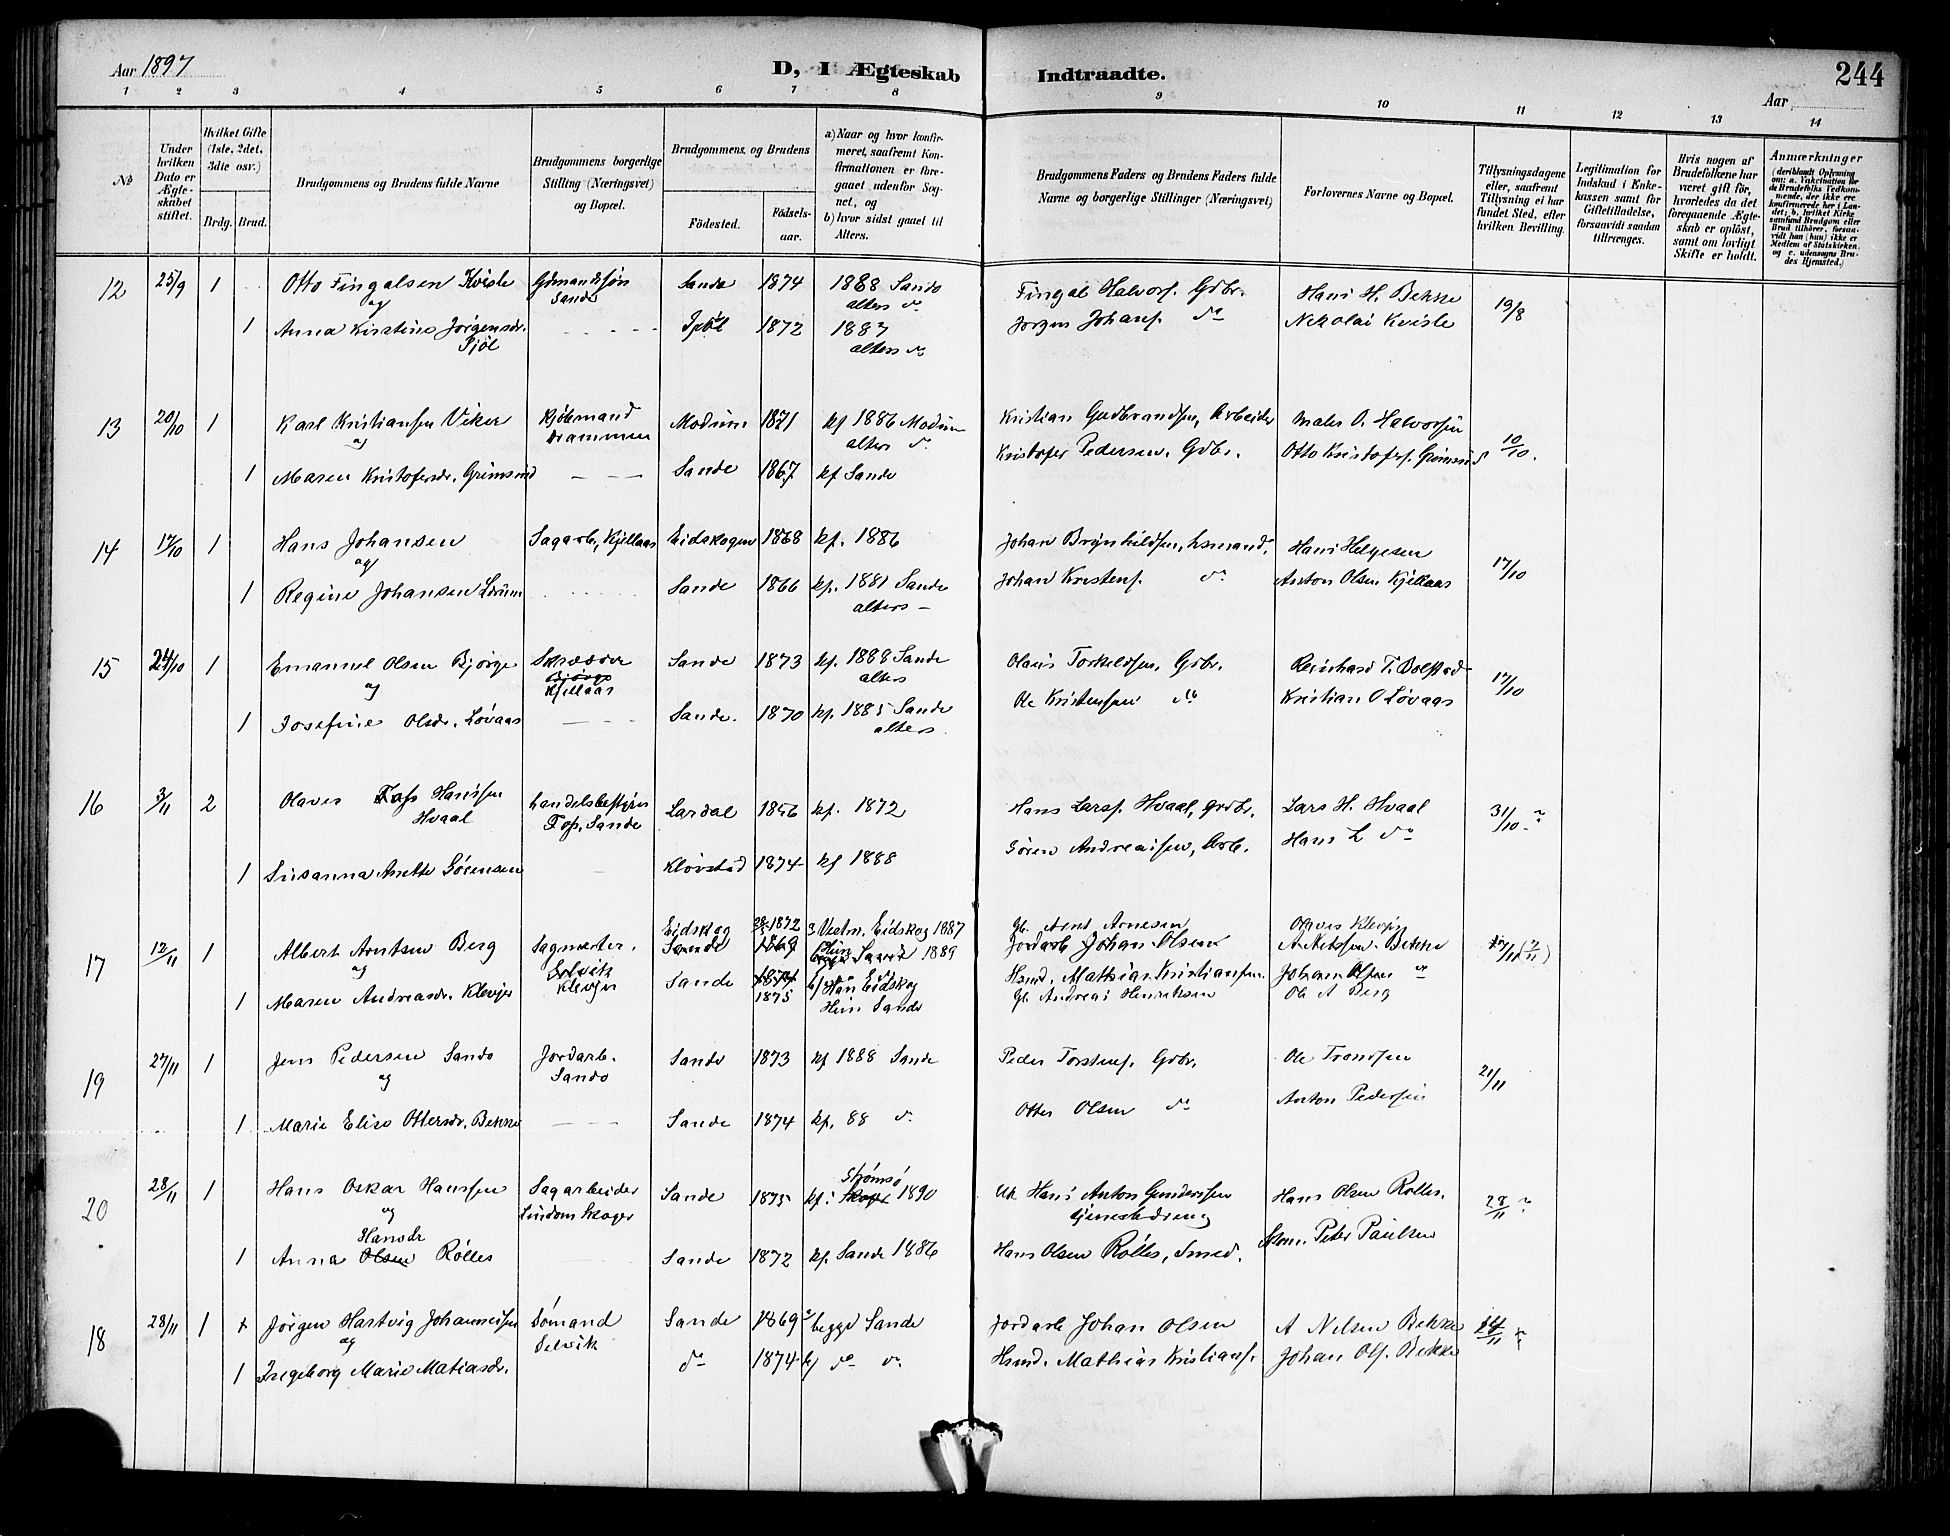 Aar 1897 D, I Ægteskab Indtraadte. 244
Aar
1 2 3 4 5 6 7 8 9 10 11 12 13 14
No
Under hvilken Dato er Ægteskabet stiftet.
Hvilket Gifte (1ste, 2det, 3die osv.)
Brdg. Brud.
Brudgommens og Brudens fulde Navne
Brudgommens borgerlige Stilling (Næringsvei) og Bopæl.
Brudgommens og Brudens
Födested. Födselsaar.
a) Naar og hvor konfirmeret, saafremt Konfirmationen er foregaaet udenfor Sognet, og
b) hvor sidst gaaet til Alters.
Brudgommens Faders og Brudens Faders fulde Navne og borgerlige Stillinger (Næringsvei)
Forlovernes Navne og Bopæl.
Tillysningsdagene eller, saafremt Tillysning ei har fundet Sted, efter hvilken Bevilling.
Legitimation for Indskud i Enkekassen samt for Giftetilladelse, forsaavidt saadan tiltrænges.
Hvis nogen af Brudefolkene har været gift för, hvorledes da det foregaaende Ægteskab er oplöst, samt om lovligt Skifte er holdt.
Anmærkninger (deriblandt Oplysning om: a. Vakcination for de Brudefolks Vedkommende, der ikke ere konfirmerede her i Landet; b. hvilket Kirkesamfund Brudgom eller Brud tilhörer, forsaavidt han (hun) ikke er Medlem af Statskirken, og c. udensogns Brudes Hjemsted.)
12 25/9 1 Otto Fingalsen Kvisle Gdmandssøn Sande 1874 1888 Sande Fingal Halvors. Gdbr. Hans H. Bekke 19/8
og Sande alters do
1 Anna Kirstine Jørgensdr. 1872 1887 Jørgen Johans. do Nikolai Kvisle
alters do
13 20/10 1 Karl Kristiansen Viker Kjøbmand Modum 1871 kf 1886 Modum Kristian Gudbrandsen, Arbeider Maler O. Halvorsen 10/10.
og Drammen alters do
1 Maren Kristofersdr. Grimsrud Sande 1867 kf Sande Kristofer Pedersen. Gdbr. Otto Kristofers. Grimsrud
14 17/10 1 Hans Johansen Sagarb, Kjellaas Eidskogen 1868 kf. 1886 Johan Brynhildsen, Hsmand. Hans Helgesen 17/10
og
1 Regine Johansen Sande 1866 kf. 1881 Sande Johan Kristens. do Anton Olsen Kjellaas
alters
15 24/10 1 Emanuel Olsen Bjørge Skrædder Sande 1873 kf. 1888 Sande Olaus Torkildsen, Gdbr. Reinhard T. Bolstad 17/10
og Bjørge Kjellaas alters
1 Josefine Olsdr. Løvaas Sande. 1870 kf. 1885 Sande Ole Kristensen do Kristian O Løvaas
alters
16 3/11 2 Olaves Hanssen Handelsbestyrer Lardal 1856 kf. 1872 Hans Lars. Hvaal, Gdbr. Lars H. Hvaal 31/10.
Hvaal Sande
1 Susanna Anette Sørensen 1874 kf 1888 Søren Andreassen, Arb. Hans L do
17 12/11 1 Albert Arntsen Berg Sagmester. Eidskog Sande 1872 1869 Eidskog 1887 Gb. Arnt Arnesen Olaves Klevjer
og Selvik Klevjer Sande 1889 Jordarb Johan Olsen A Nilssen Bekke
1 Maren Andreasdr. Klevjer Sande 1874 1875 b/ Han Eidskog Hsmd. Mathias Kristiansen. Johan Olsen do
Hun Sande Gb. Andreas Henriksen Ole A Berg
19 27/11 1 Jens Pedersen Sande Jordarb. Sande 1873 kf 1888 Sande Peder Torstens. Gdbr. Ole Tronssen 21/11
og Sande
1 Marie Elise Ottersdr. Bekke Sande 1874 kf. 88 do Otter Olsen do Anton Pedersen
20 28/11 1 Hans Oskar Hanssen Sagarbeider Sande 1875 kf: Strømsø 1890 Hans Anton Gundersen Hans Olsen Rolles. 28/11
og Skoger tjenestedreng
Hansdr
1 Anna Olsen Rølles Sande 1872 kf. Sande 1886 Hans Olsen Rølles, Smed. Peter Paulsen
18 28/11 1 + Jørgen Hartvig Johannessen Sømand Sande 1869 a/ begge Sande Jordarb Johan Olsen A Nilsen Bekke 14/11
og Selvik
1 Ingeborg Marie Matiasdr. do 1874 b/ do do Hsmd. Mathias Kristians. Johan Ols. Bekke